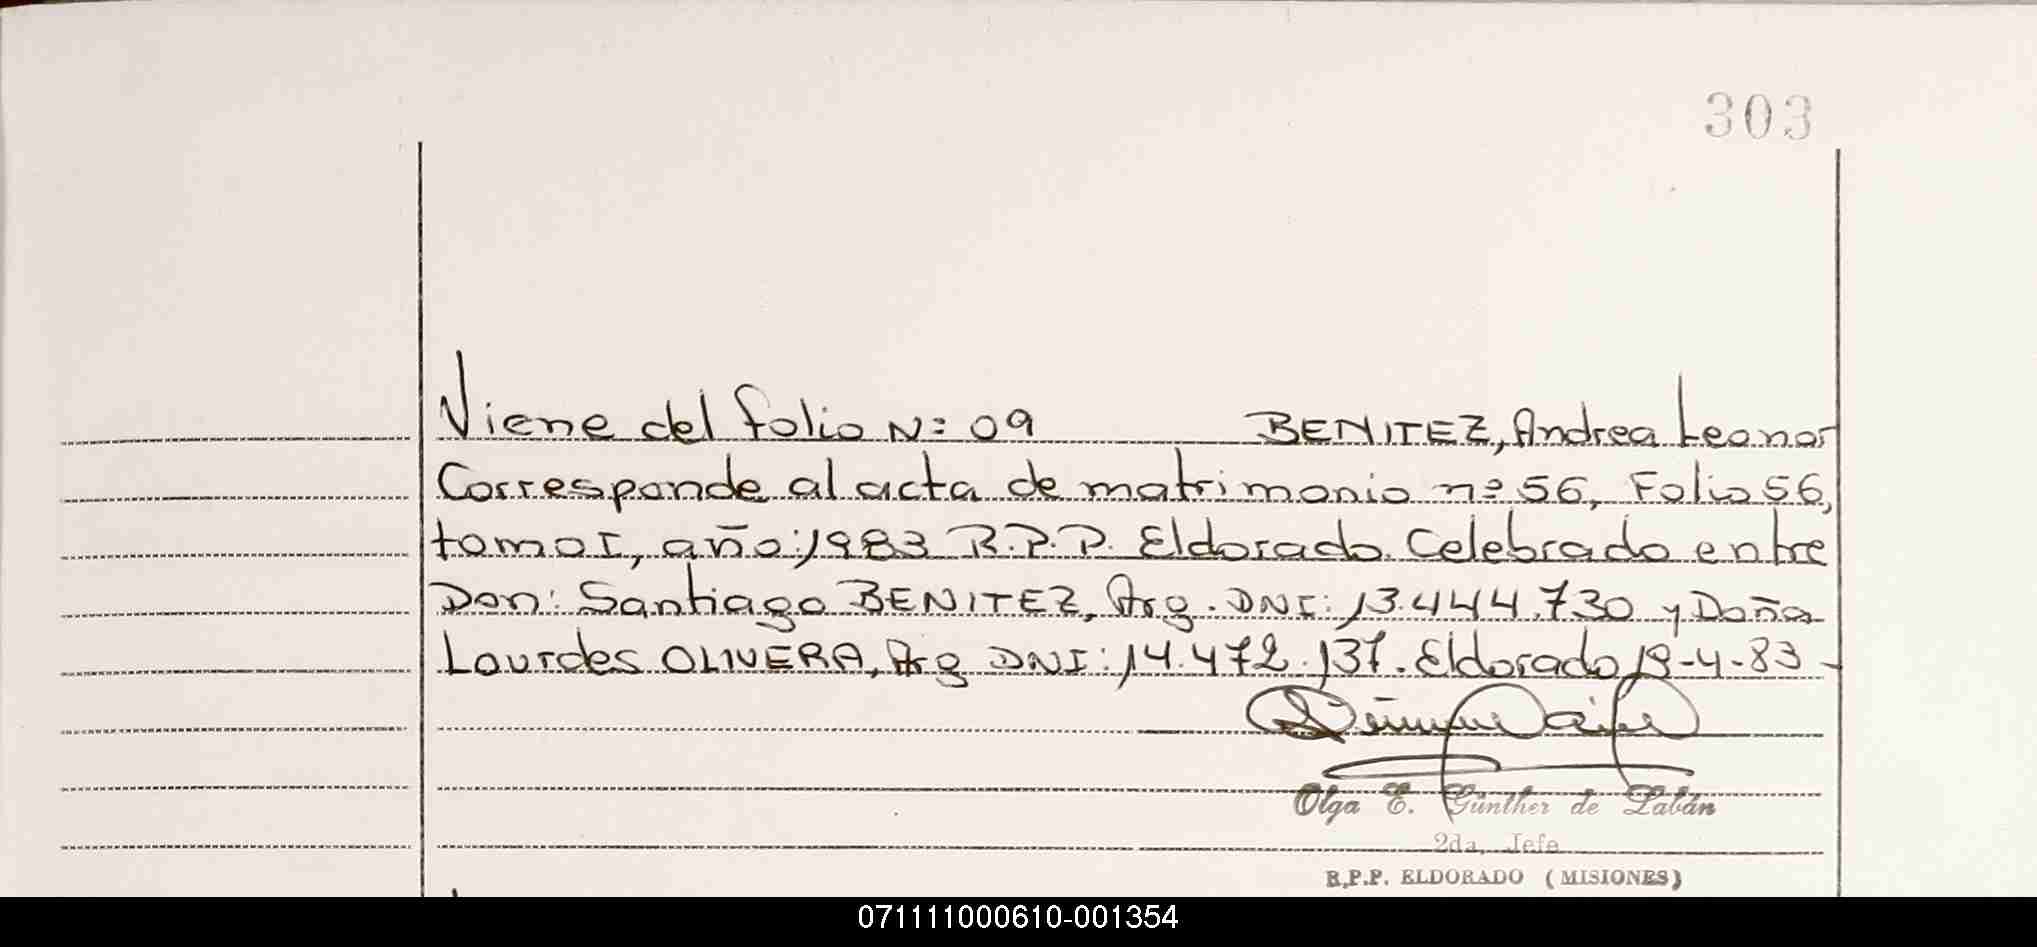 303
Viene del folio Nº 09 BENITEZ, Andrea Leonor
Corresponde al acta de matrimonio nº 56, Folio 56,
tomo I, año: 1983 R.P.P. Eldorado. Celebrado entre
Don: Santiago BENITEZ, Arg. DNI: 13.444.730 y Doña
Lourdes OLIVERA, Arg DNI: 14.472.137. Eldorado 19-4-83-
Olga E. Günther de Labán
2da. Jefe
R.P.P. ELDORADO (MISIONES)
071111000610-001354